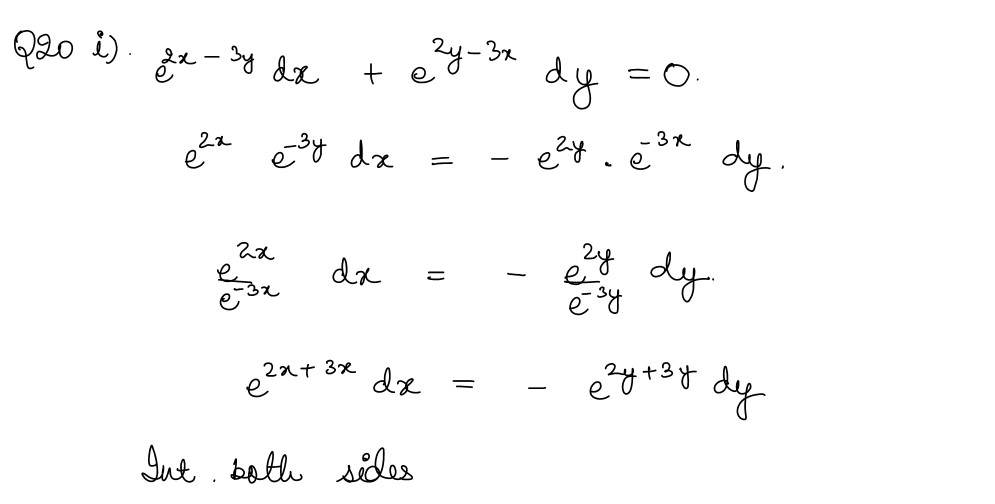 Q20 i). e^{2x-3y} dx + e^{2y-3x} dy = 0.
e^{2x} e^{-3y} dx = - e^{2y} . e^{-3x} dy.
\frac{e^{2x}}{e^{-3x}} dx = - \frac{e^{2y}}{e^{-3y}} dy.
e^{2x+3x} dx = - e^{2y+3y} dy
Int. both sides